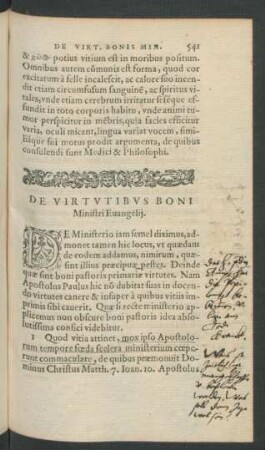 DE VIRT. BONIS MIN. 541
potius vitium est in moribus positum.
Omnibus autem cõmunis est forma, quod cor
excitatum à felle incalescit, ac calore suo incen-
dit etiam circumfusum sanguinē, ac spiritus vi-
tales, unde etiam cerebrum irritatur sicque ef-
fundit in toto corporis habitu, unde animi tu-
mor perspicitur in mēbris, quia facies efficitur
varia, oculi micant, lingua variat vocem, simi-
lisque sui motus prodit argumenta, de quibus
consulendi sunt Medici & Philosophi.
DE VIRTVTIBVS BONI
Ministri Euangelij.
DE Ministerio iam semel diximus, ad-
monet tamen hic locus, vt quædam
de eodem addamus, nimirum, quæ-
sint illius præcipuæ pestes. Deinde
quæ sint boni pastoris primariæ virtutes. Nam
Apostolus Paulus hic nõ dubitat suas in docen-
do virtutes canere & insuper à quibus vitiis im-
primis sibi cauerit. Quæ si recte ministerio ap-
plicemus non obscure boni pastoris idea abso-
lutissima confici videbitur.
1 Quod vitia attinet, mox ipso Apostolo-
rum tempore fœda scelera ministerium cœpe-
runt commaculare, de quibus præmonuit Do-
minus Christus Matth. 7. Ioan. 10. Apostolus